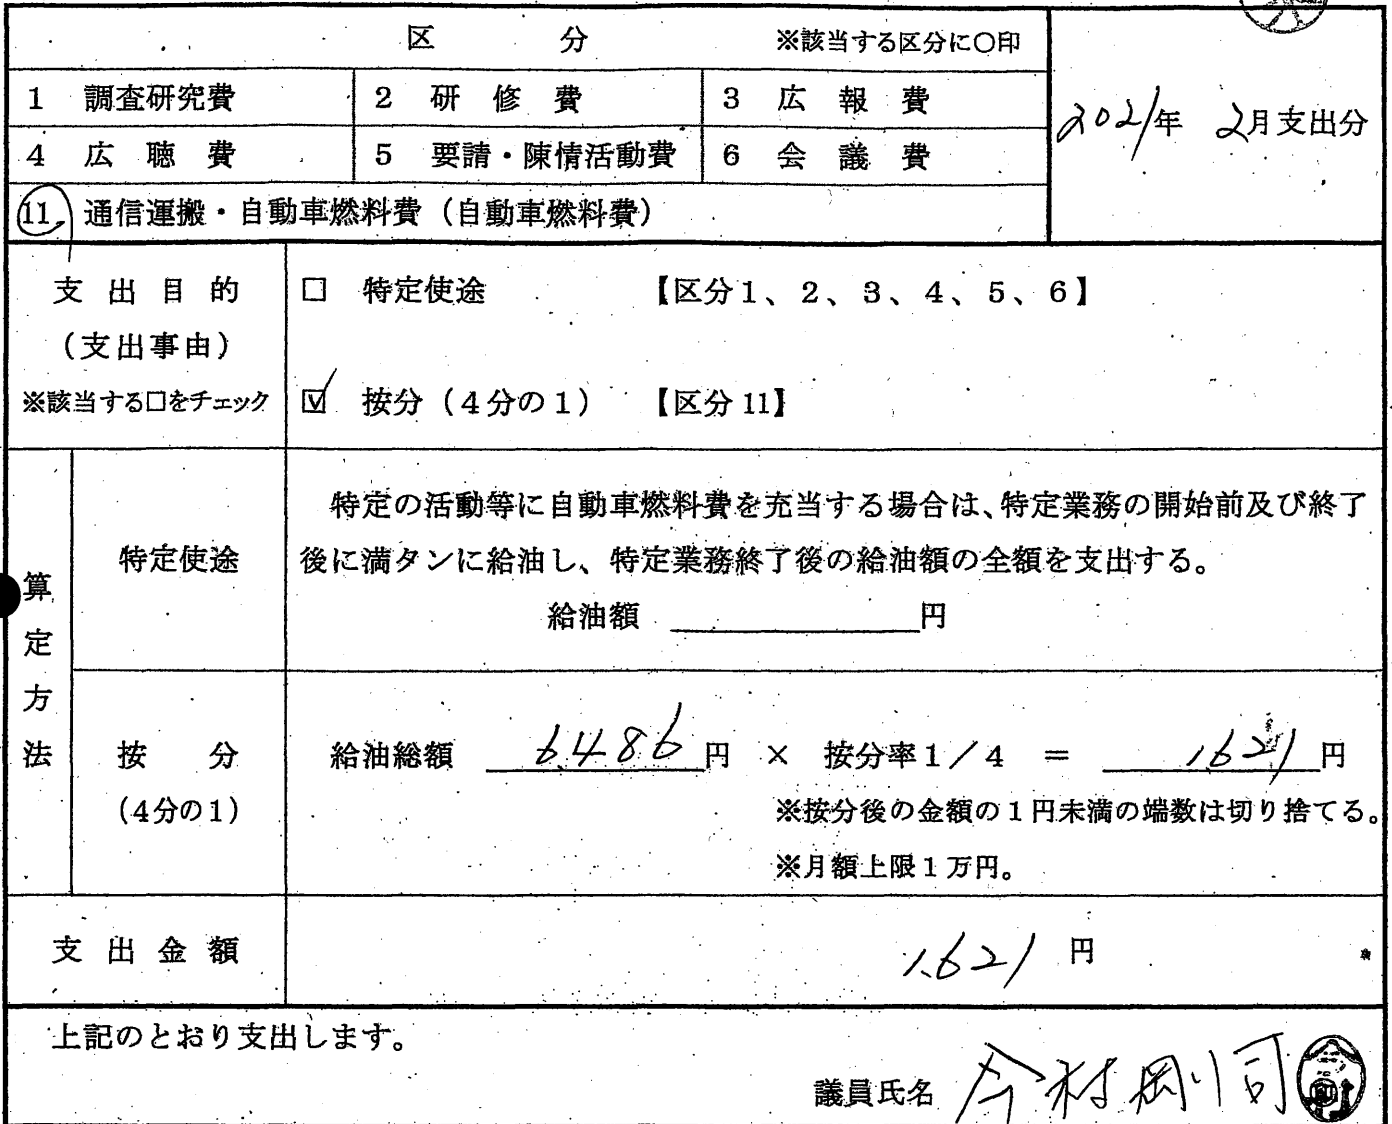 区 分 ※該当する区分に○印
1 調査研究費 2 研修費 3 広報費
2021年 2月支出分
4 広聴費 5 要請・陳情活動費 6 会議費
11. 通信運搬・自動車燃料費(自動車燃料費)
支出目的
(支出事由)
※該当する□をチェック
□ 特定使途 【区分1、2、3、4、5、6】
☑ 按分(4分の1) 【区分11】
算定方法
特定使途
特定の活動等に自動車燃料費を充当する場合は、特定業務の開始前及び終了
後に満タンに給油し、特定業務終了後の給油額の全額を支出する。
給油額 円
按分
(4分の1)
給油総額 6,486円 × 按分率1/4 = 1,621円
※按分後の金額の1円未満の端数は切り捨てる。
※月額上限1万円。
支出金額 1,621円
上記のとおり支出します。
議員氏名 今村剛司